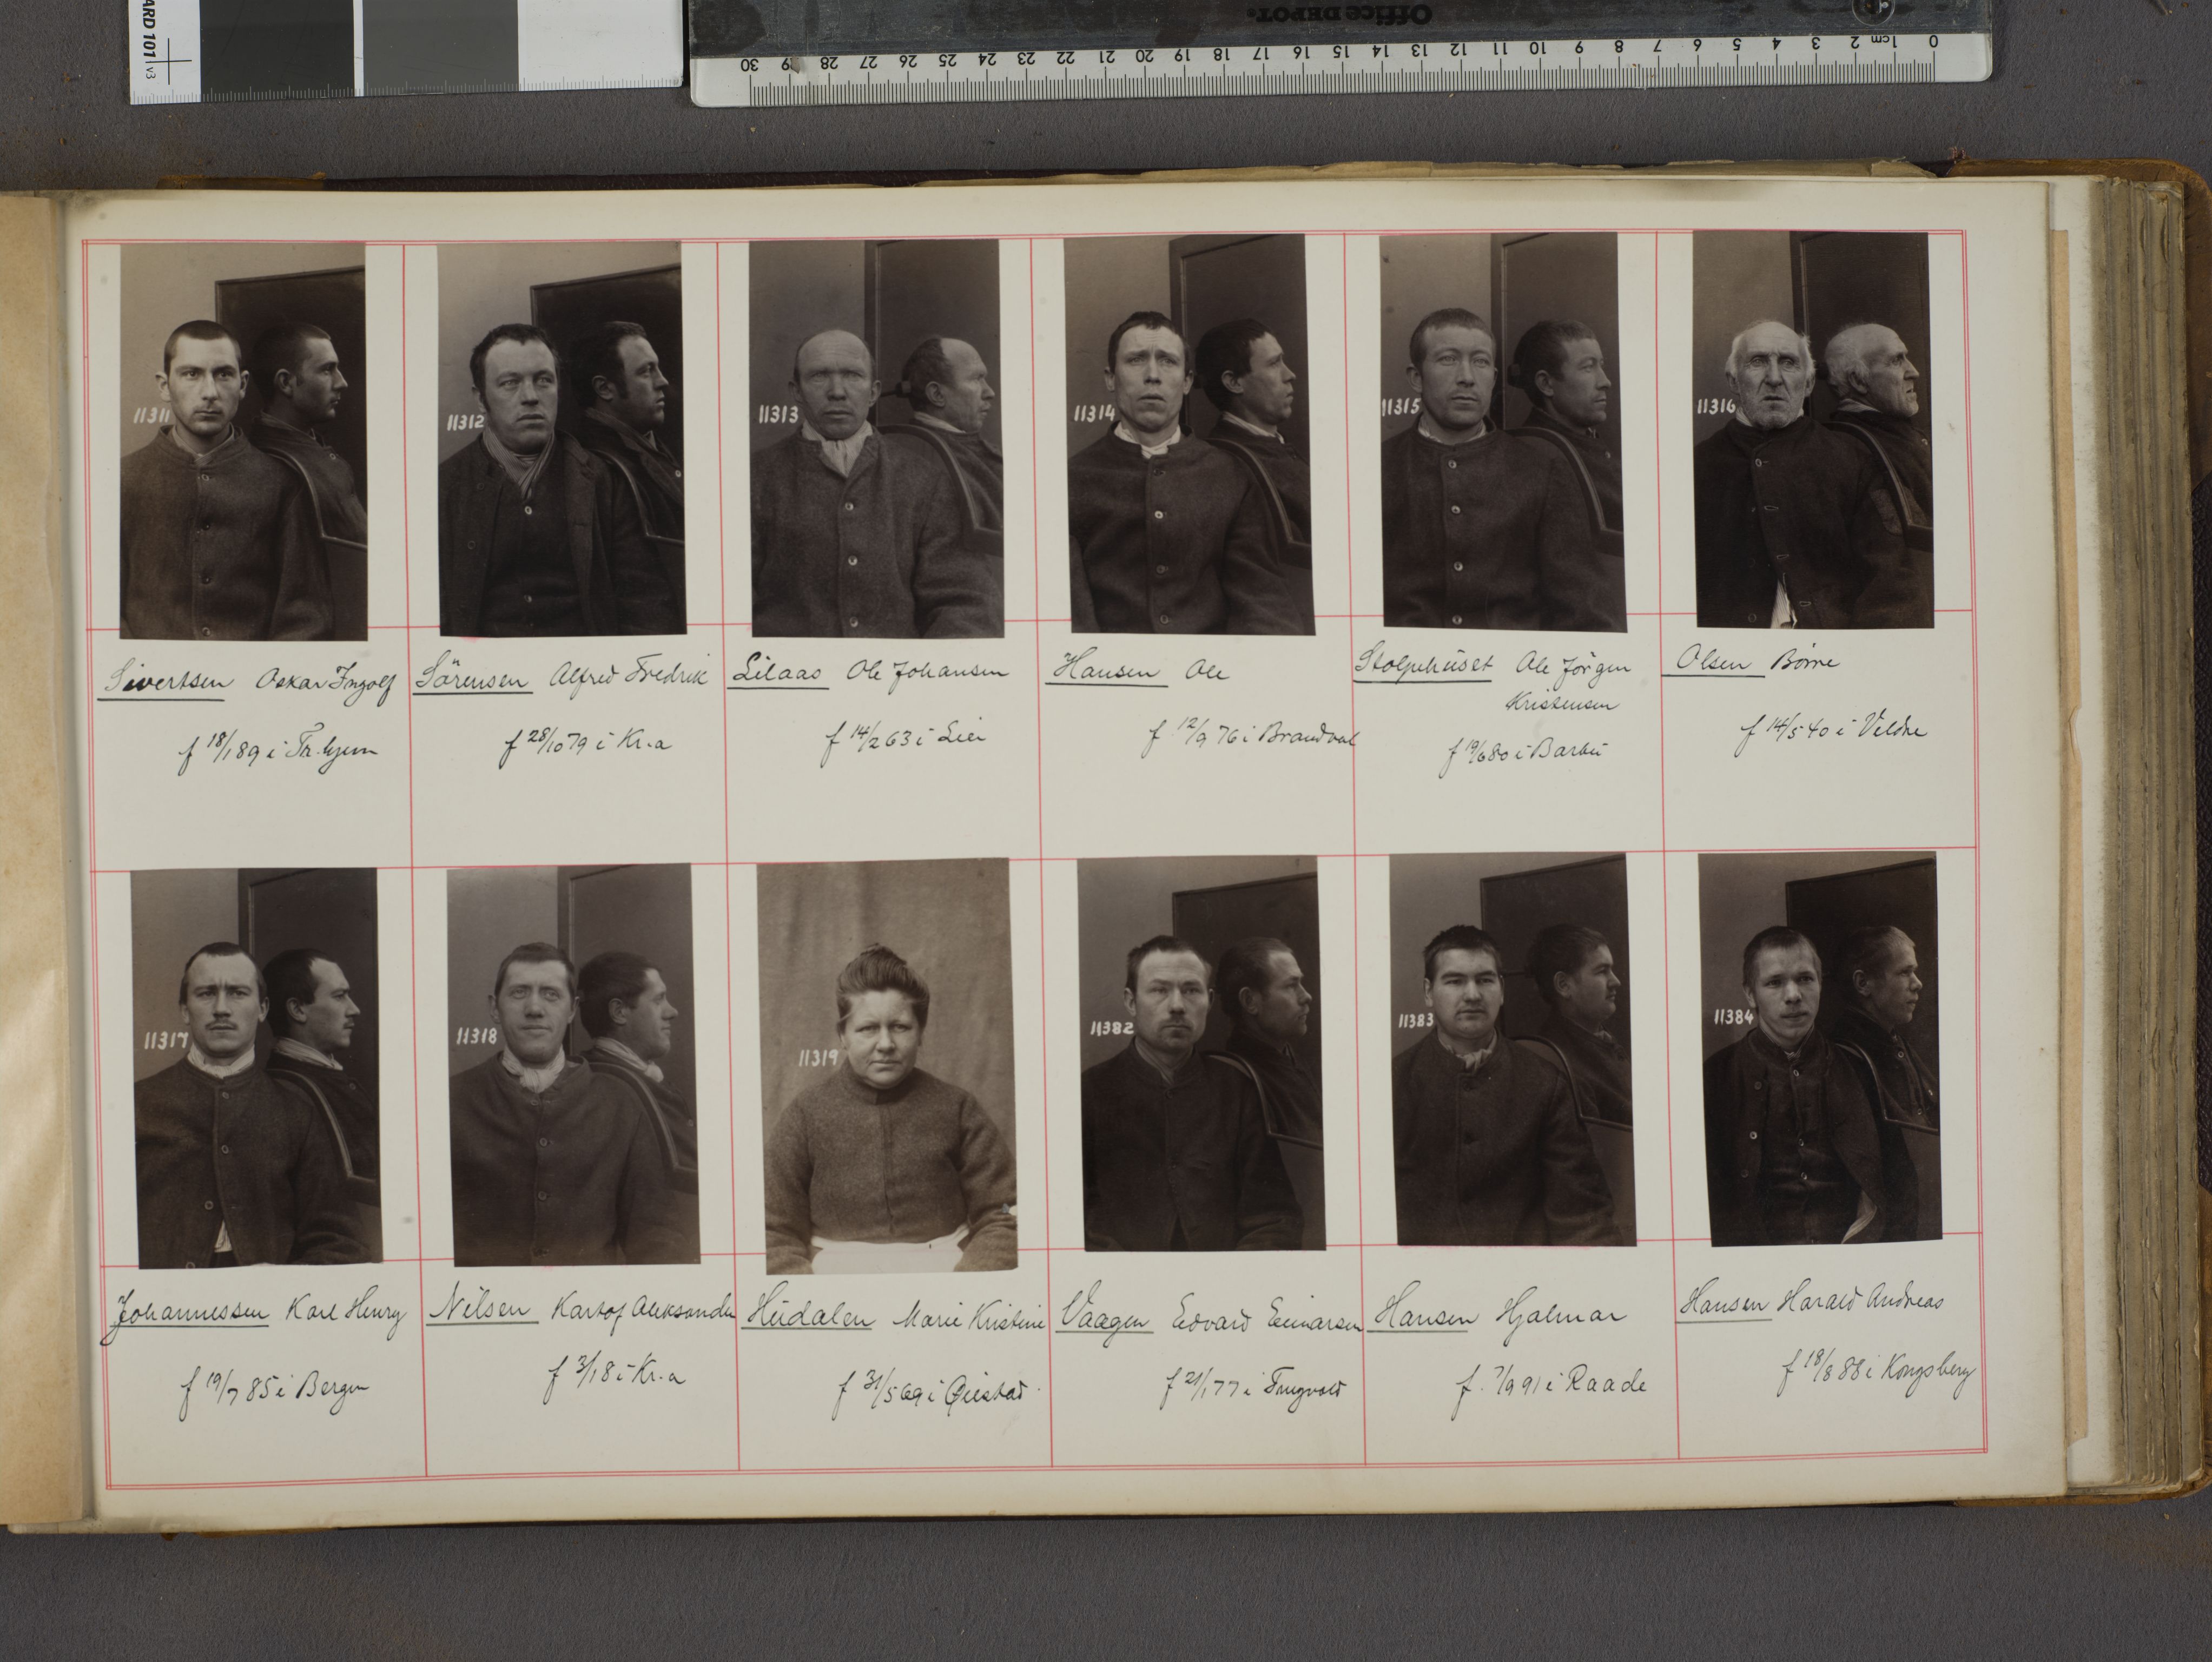 ARD 101 v3
Office DEPOT.
0 1cm 2 3 4 5 6 7 8 9 10 11 12 13 14 15 16 17 18 19 20 21 22 23 24 25 26 27 28 29 30
11311
11312
11313
11314
11315
11316
Sivertsen Oskar Ingolf
f 18/1 89 i Tr.hjem
Sörensen Alfred Fredrik
f 28/10 79 i Kr.a
Lilaas Ole Johansen
f 14/2 63 i Lier
Hansen Ole
f 12/9 76 i Brandval
Stolpehuset Ole Jörgen
Kristensen
f 19/6 80 i Barbu
Olsen Börre
f 14/5 40 i Veldre
11317
11318
11319
11382
11383
11384
Johannessen Karl Henry
f 19/7 85 i Bergen
Nilsen Karstof Aleksander
f 3/1 8 i Kr.a
Hüdalen Marie Kristine
f 31/5 69 i Øiestad
Vaagen Edvard Einarsen
f 21/1 77 i Tingvold
Hansen Hjalmar
f. 7/9 91 i Raade
Hansen Harald Andreas
f 18/8 88 i Kongsberg